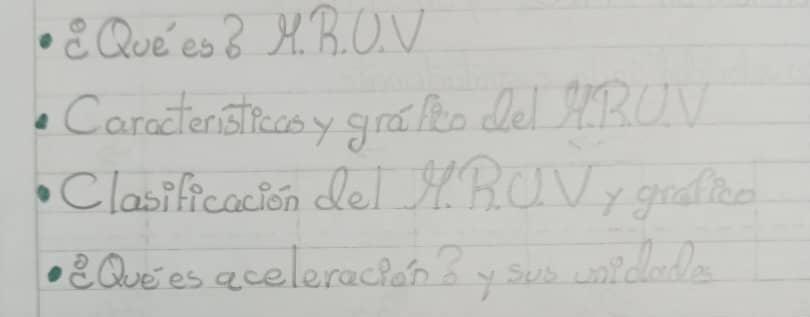 • ¿Qué es? M.R.U.V
• Características y gráfico del M.R.U.V
• Clasificación del M.R.U.V y gráfico
• ¿Qué es aceleración? y sus unidades